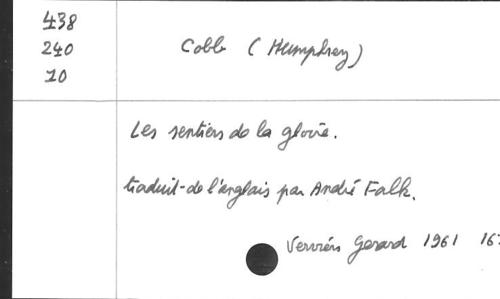 438
240
10
Cobb (Humphrey)
Les sentiers de la gloire.
traduit de l'anglais par André Falk.
Verviers Gerard 1961 16